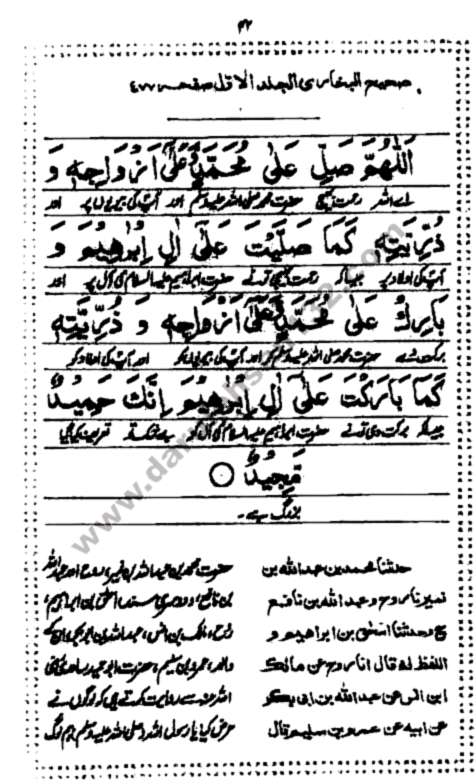 ۴۲
صحیح البخاری الجلد الاول صفحہ ۴۷۷
اَللّٰهُمَّ صَلِّ عَلٰى مُحَمَّدٍ وَّعَلٰٓى اَزْوَاجِهٖ وَ
اے اللہ رحمت بھیج حضرت محمد صلی اللہ علیہ وسلم اور آپ کی بیویوں پر اور
ذُرِّيَّتِهٖ كَمَا صَلَّيْتَ عَلٰٓى اٰلِ اِبْرَاهِيْمَ وَ
آپ کی اولاد پر جیسا کہ رحمت بھیجی تو نے حضرت ابراہیم علیہ السلام کی آل پر اور
بَارِكْ عَلٰى مُحَمَّدٍ وَّعَلٰٓى اَزْوَاجِهٖ وَ ذُرِّيَّتِهٖ
برکت دے حضرت محمد صلی اللہ علیہ وسلم کو اور آپ کی بیویوں کو اور آپ کی اولاد کو
كَمَا بَارَكْتَ عَلٰٓى اٰلِ اِبْرَاهِيْمَ اِنَّكَ حَمِيْدٌ
جیسا کہ برکت دی تو نے حضرت ابراہیم علیہ السلام کی آل کو بے شک تو تعریف کیا گیا
مَّجِيْدٌ
بزرگ ہے۔
حدثنا محمد بن عبد الله بن
نمیر نا روح و عبد الله بن نافع
ح وحدثنا اسحٰق بن ابراهيم و
اللفظ له قال انا روح عن مالك
ابن انس عن عبد الله بن ابی بكر
عن ابيه عن عمرو بن سليم قال
حضرت محمد بن عبد اللہ بن نمیر، روح اور عبد اللہ
بن نافع، دوسری سند اسحٰق بن ابراہیم،
روح، مالک بن انس، عبد اللہ بن ابوبکر، ان کے
والد، عمرو بن سلیم، حضرت ابو حمید ساعدی رضی
اللہ عنہ سے روایت کرتے ہیں کہ لوگوں نے
عرض کیا یا رسول اللہ (صلی اللہ علیہ وسلم) ہم لوگ